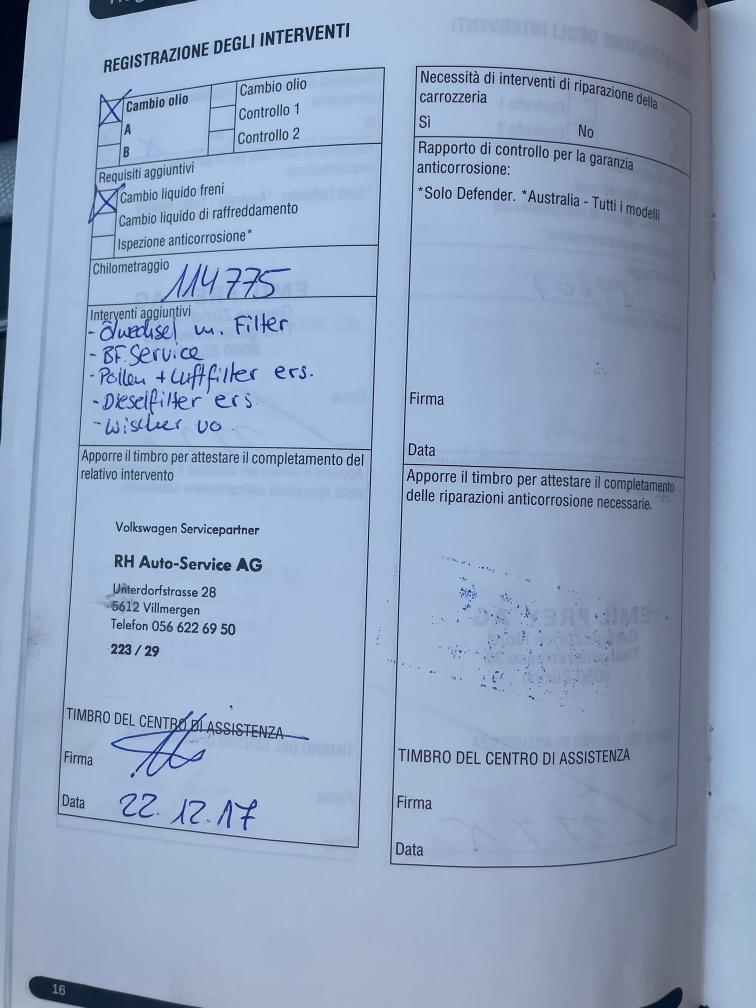 REGISTRAZIONE DEGLI INTERVENTI
Cambio olio
A
B
Cambio olio
Controllo 1
Controllo 2
Requisiti aggiuntivi
Cambio liquido freni
Cambio liquido di raffreddamento
Ispezione anticorrosione*
Chilometraggio
114775
Interventi aggiuntivi
- Ölwechsel m. Filter
- BF. Service
- Pollen + Luftfilter ers.
- Dieselfilter ers.
- Wischer vo.
Apporre il timbro per attestare il completamento del
relativo intervento
Volkswagen Servicepartner
RH Auto-Service AG
Unterdorfstrasse 28
5612 Villmergen
Telefon 056 622 69 50
223 / 29
TIMBRO DEL CENTRO DI ASSISTENZA
Firma
Data 22.12.17
Necessità di interventi di riparazione della
carrozzeria
Sì No
Rapporto di controllo per la garanzia
anticorrosione:
*Solo Defender. *Australia - Tutti i modelli
Firma
Data
Apporre il timbro per attestare il completamento
delle riparazioni anticorrosione necessarie.
TIMBRO DEL CENTRO DI ASSISTENZA
Firma
Data
16